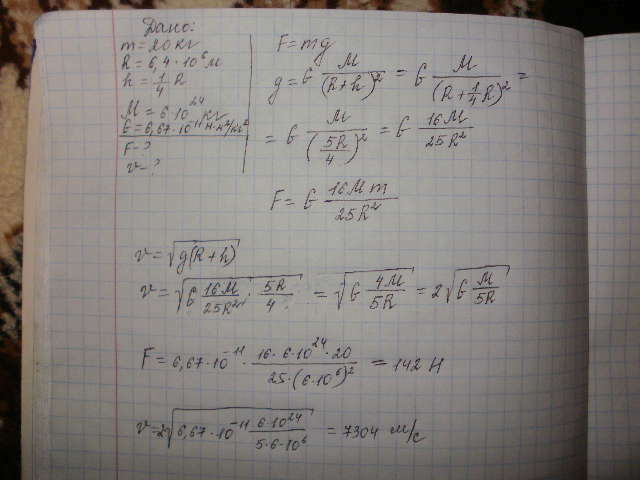 Дано:
m = 20 кг
R = 6,4 · 10⁶ м
h = 1/4 R
M = 6·10²⁴ кг
G = 6,67·10⁻¹¹ Н·м²/кг²
F - ?
v - ?
F = mg
g = G M/(R+h)² = G M/(R+1/4R)² =
= G M/(5R/4)² = G 16M/25R²
F = G 16Mm/25R²
v = √g(R+h)
v = √G 16M/25R² · 5R/4 = √G 4M/5R = 2√G M/5R
F = 6,67·10⁻¹¹ · 16·6·10²⁴·20/25·(6·10⁶)² = 142 Н
v = 2√6,67·10⁻¹¹ 6·10²⁴/5·6·10⁶ = 7304 м/с